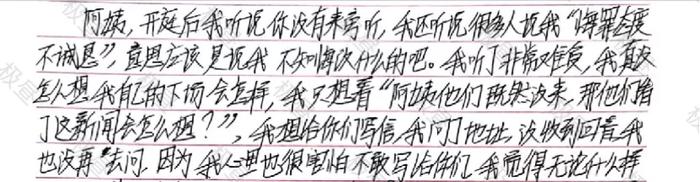 阿姨,开庭后我听说你没有来旁听,我还听说很多人说我“悔罪态度
不诚恳”,意思应该是说我不知悔改什么的吧。我听了非常难受,我真没
怎么想我自己的下场会怎样,我只想着“阿姨他们既然没来,那他们看
了这新闻会怎么想?”,我想给你们写信,我问了地址,没收到回音,我
也没再去问,因为我心里也很害怕不敢写给你们,我觉得无论什么样